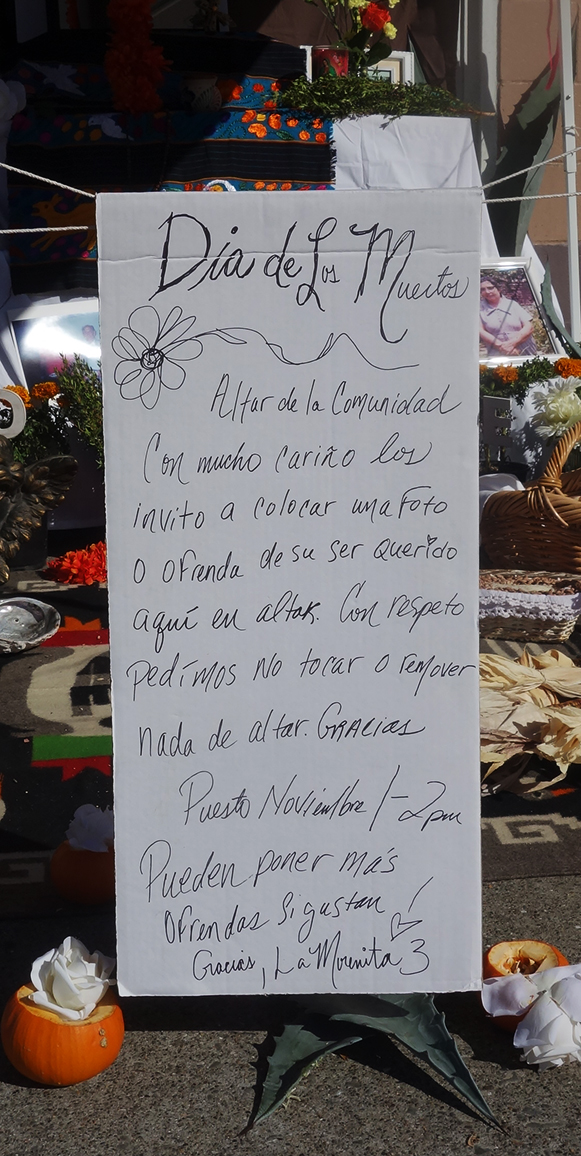 Dia de Los Muertos
Altar de la Comunidad
Con mucho cariño los
invito a colocar una Foto
o ofrenda de su ser querido
aquí en altar. Con respeto
pedimos no tocar o remover
nada de altar. Gracias
Puesto Noviembre 1-2pm
Pueden poner más
ofrendas si gustan!
Gracias, La Morenita 3